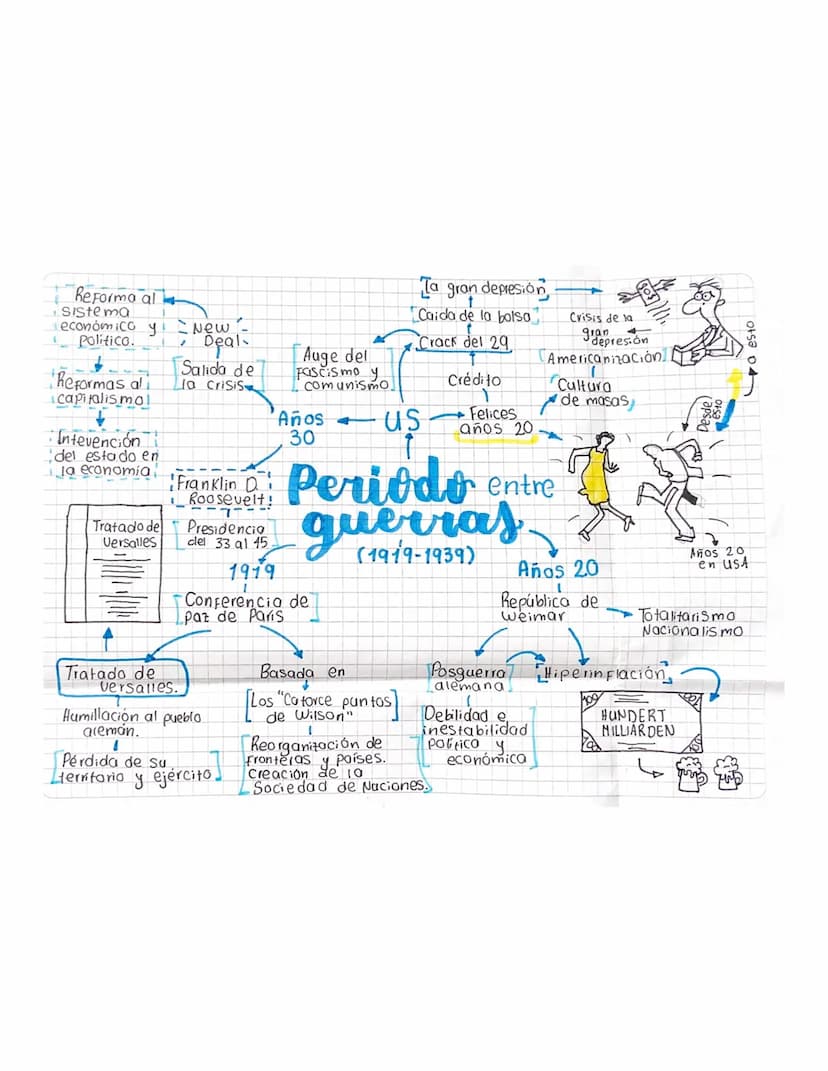 Periodo entre
guerras
(1919-1939)
US
Felices
años 20
Crédito
Crack del 29
Caida de la bolsa
La gran depresión
Crisis de la
gran
depresión
Americanización
Cultura
de masas
Desde
esto
a esto
Años 20
en USA
Auge del
Fascismo y
comunismo
Años
30
Salida de
la crisis
New
Deal
Reforma al
sistema
económico y
político.
Reformas al
capitalismo
Intevención
del estado en
la economía
Franklin D.
Roosevelt
Presidencia
del 33 al 45
1919
Conferencia de
paz de París
Tratado de
Versalles
Tratado de
Versalles.
Humillación al pueblo
alemán.
Pérdida de su
territorio y ejército
Basada en
Los "Catorce puntos
de Wilson"
Reorganización de
fronteras y países.
Creación de la
Sociedad de Naciones.
Años 20
República de
Weimar
Totalitarismo
Nacionalismo
Posguerra
alemana
Debilidad e
inestabilidad
política y
económica
Hiperinflación
100
100
HUNDERT
MILLIARDEN